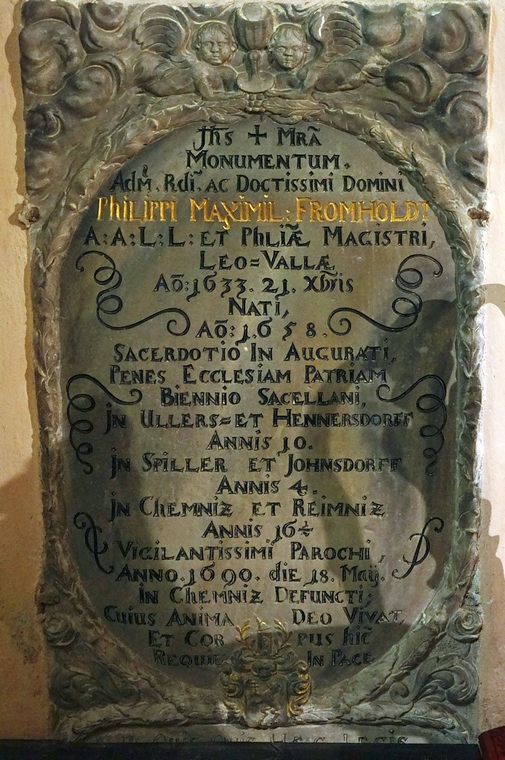 Jhs + Mrã
Monumentum.
Adm̊. Rdĩ. ac Doctissimi Domini
Philippi Maximil: Fromholdt
A:A:L:L: et Phliæ Magistri,
Leo=Vallæ
Aõ: 1633. 21. Xbris
Nati,
Aõ: 1658.
Sacerdotio In Augurati,
Penes Ecclesiam Patriam
Biennio Sacellani,
Jn Ullers= et Hennersdorff
Annis 10.
Jn Spiller et Johnsdorff
Annis 4.
Jn Chemniz et Reimniz
Annis 16½
Vigilantissimi Parochi,
Anno. 1690. die 18. Maÿ.
In Chemniz Defuncti;
Cuius Anima Deo Vivat,
Et Cor pus hic
Requie In Pace